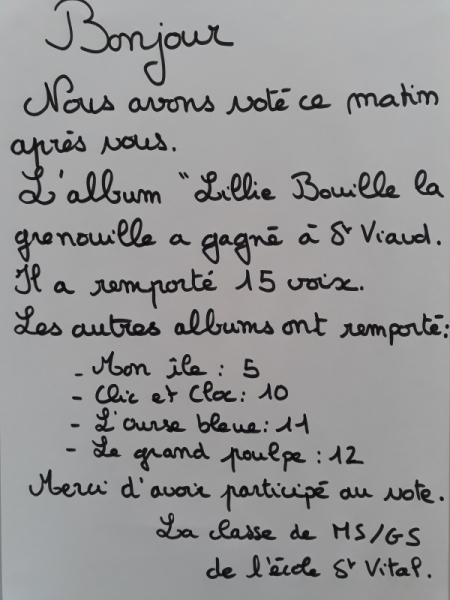 Bonjour
Nous avons voté ce matin
après vous.
L'album "Lillie Bouille la
grenouille a gagné à St Viaud.
Il a remporté 15 voix.
Les autres albums ont remporté:
- Mon île : 5
- Clic et Cloc : 10
- L'ourse bleue : 11
- Le grand poulpe : 12
Merci d'avoir participé au vote.
La classe de MS/GS
de l'école St Vital.